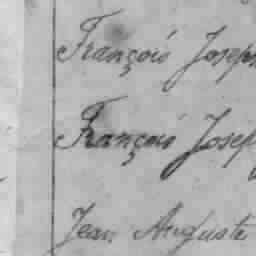 François Joseph
François Josep
Jean Auguste